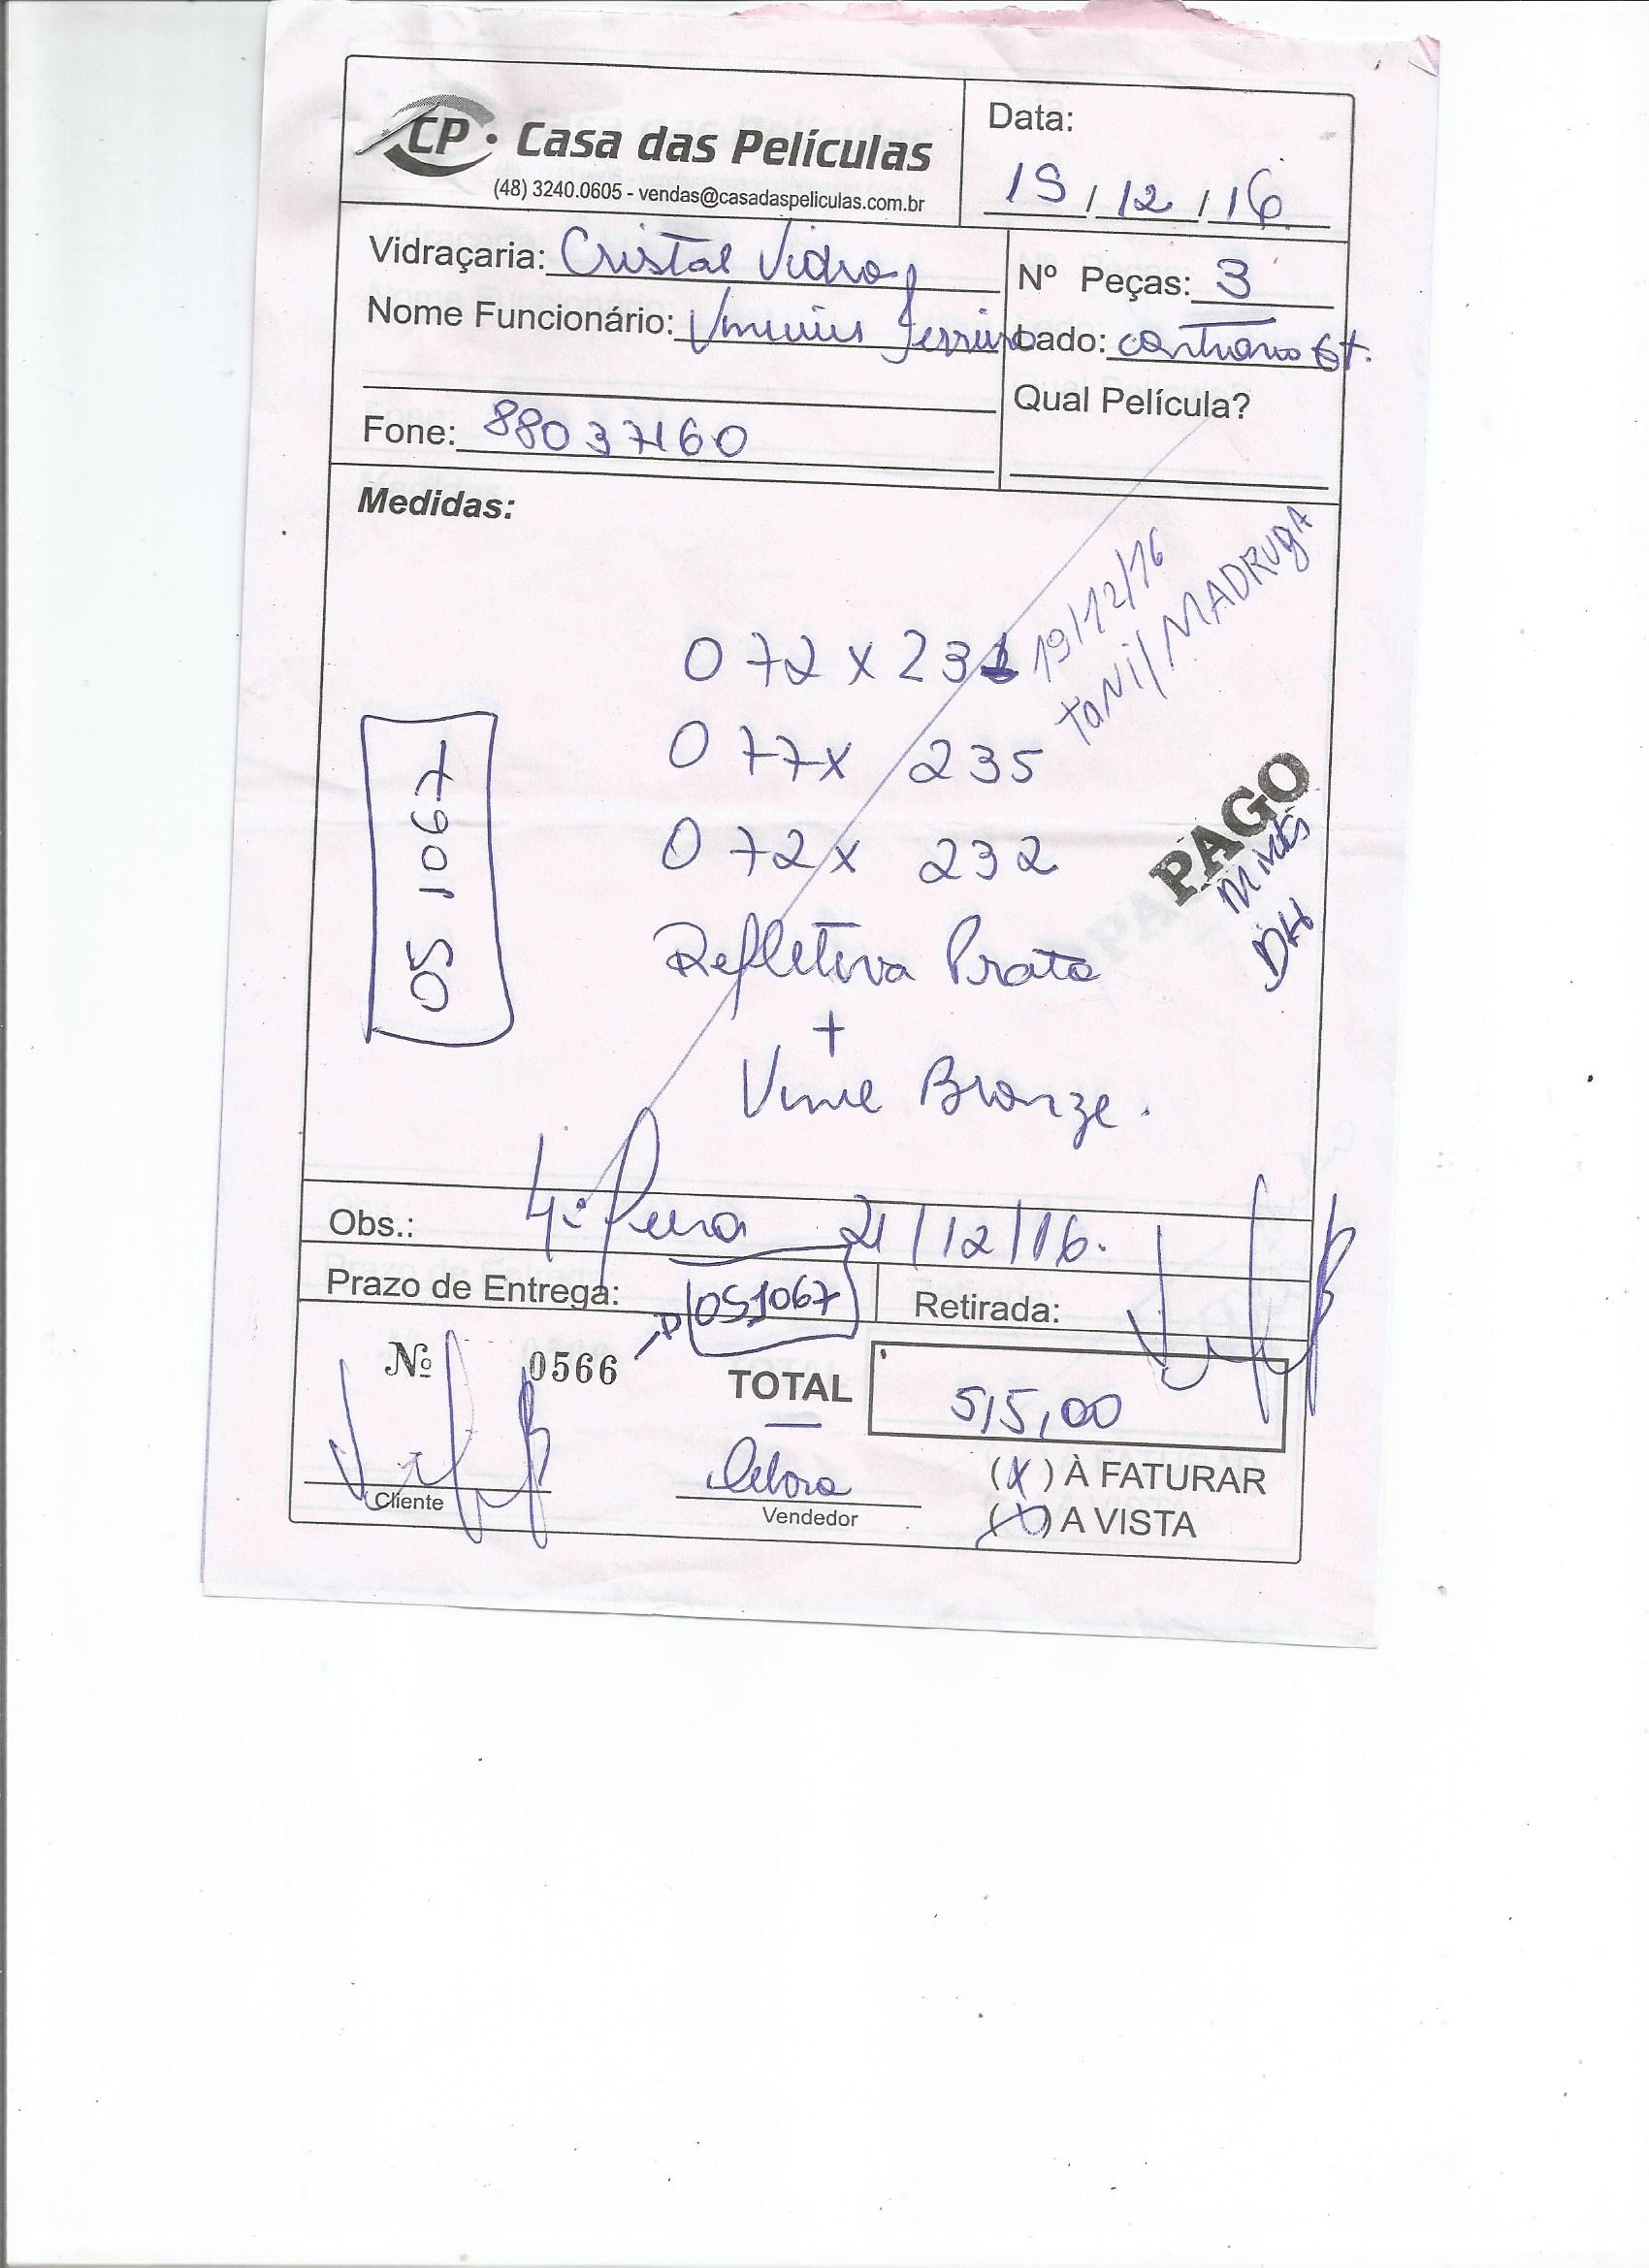 CP. Casa das Películas
(48) 3240.0605 - vendas@casadaspeliculas.com.br
Data:
19/12/16
Vidraçaria: Cristal Vidros
Nº Peças: 3
Nome Funcionário: Vinicius Ferreira
Lado: contrario et.
Qual Película?
Fone: 88037160
Medidas:
19/12/16
taNi/MADRUgA
072 x 231
077x 235
072x 232
PAGO
DH
OS 1067
Refletiva Prata
+
Vinil Bronze.
Obs.: 4ª Feira 21/12/16.
Prazo de Entrega: OS1067
Retirada:
Nº 0566
TOTAL 515,00
Debora
Cliente
Vendedor
(X) À FATURAR
( ) A VISTA